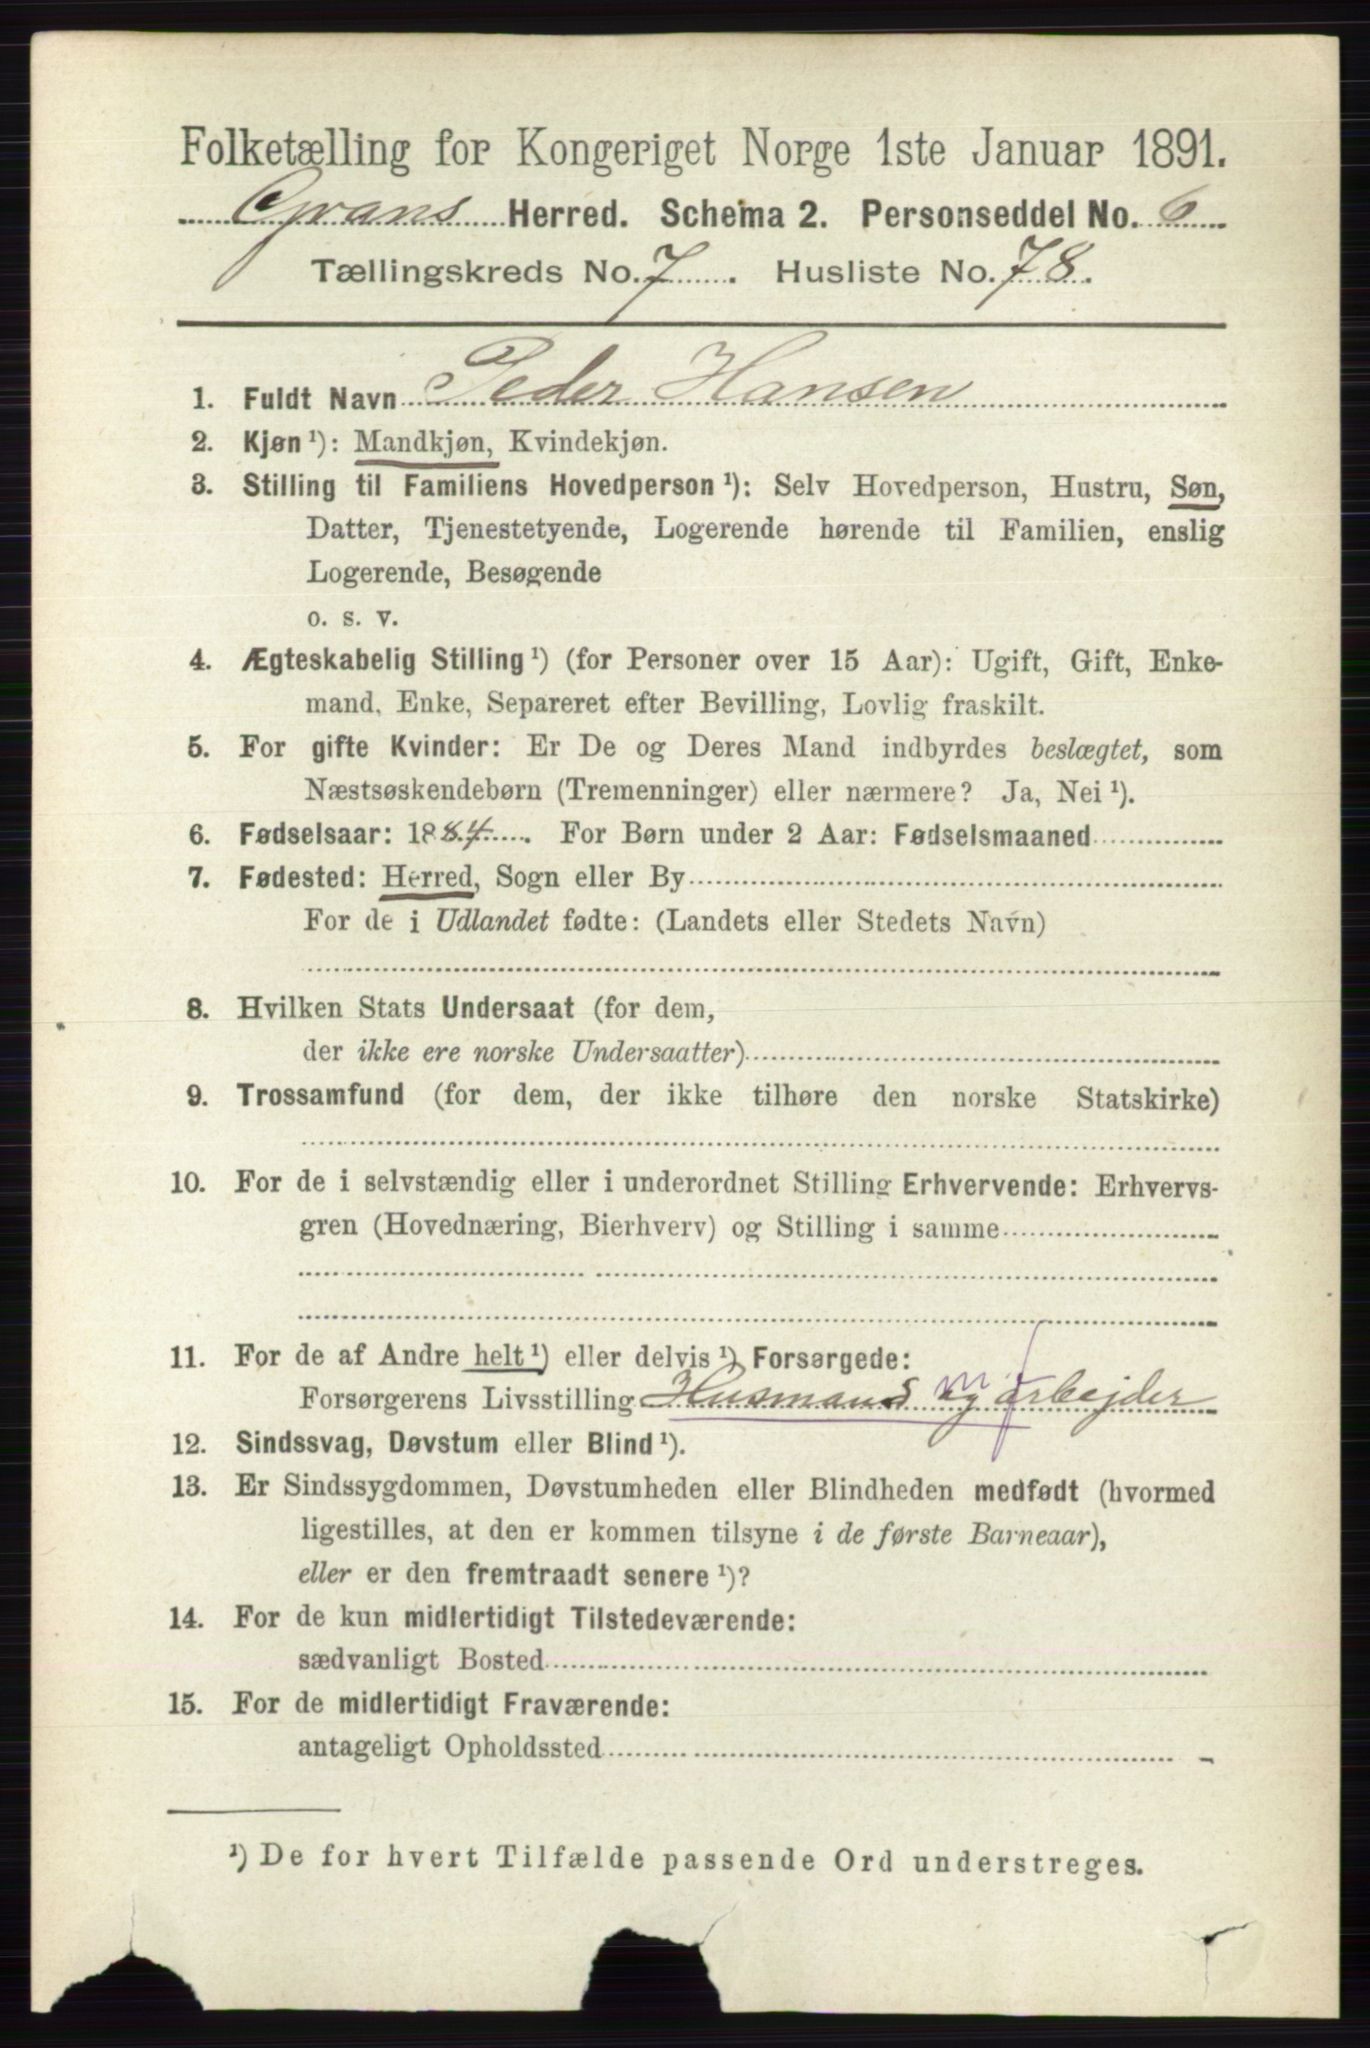 Folketælling for Kongeriget Norge 1ste Januar 1891.
Grans Herred. Schema 2. Personseddel No. 6
Tællingskreds No. 7. Husliste No. 78.
1. Fuldt Navn Peder Hansen
2. Kjøn ¹): Mandkjøn, Kvindekjøn.
3. Stilling til Familiens Hovedperson ¹): Selv Hovedperson, Hustru, Søn,
Datter, Tjenestetyende, Logerende hørende til Familien, enslig
Logerende, Besøgende
o. s. v.
4. Ægteskabelig Stilling ¹) (for Personer over 15 Aar): Ugift, Gift, Enke-
mand, Enke, Separeret efter Bevilling, Lovlig fraskilt.
5. For gifte Kvinder: Er De og Deres Mand indbyrdes beslægtet, som
Næstsøskendebørn (Tremenninger) eller nærmere? Ja, Nei ¹).
6. Fødselsaar: 1884. For Børn under 2 Aar: Fødselsmaaned
7. Fødested: Herred, Sogn eller By
For de i Udlandet fødte: (Landets eller Stedets Navn)
8. Hvilken Stats Undersaat (for dem,
der ikke ere norske Undersaatter)
9. Trossamfund (for dem, der ikke tilhøre den norske Statskirke)
10. For de i selvstændig eller i underordnet Stilling Erhvervende: Erhvervs-
gren (Hovednæring, Bierhverv) og Stilling i samme
11. For de af Andre helt ¹) eller delvis ¹) Forsørgede:
Forsørgerens Livsstilling Husmand og arbejder
12. Sindssvag, Døvstum eller Blind ¹).
13. Er Sindssygdommen, Døvstumheden eller Blindheden medfødt (hvormed
ligestilles, at den er kommen tilsyne i de første Barneaar),
eller er den fremtraadt senere ¹)?
14. For de kun midlertidigt Tilstedeværende:
sædvanligt Bosted
15. For de midlertidigt Fraværende:
antageligt Opholdssted
¹) De for hvert Tilfælde passende Ord understreges.